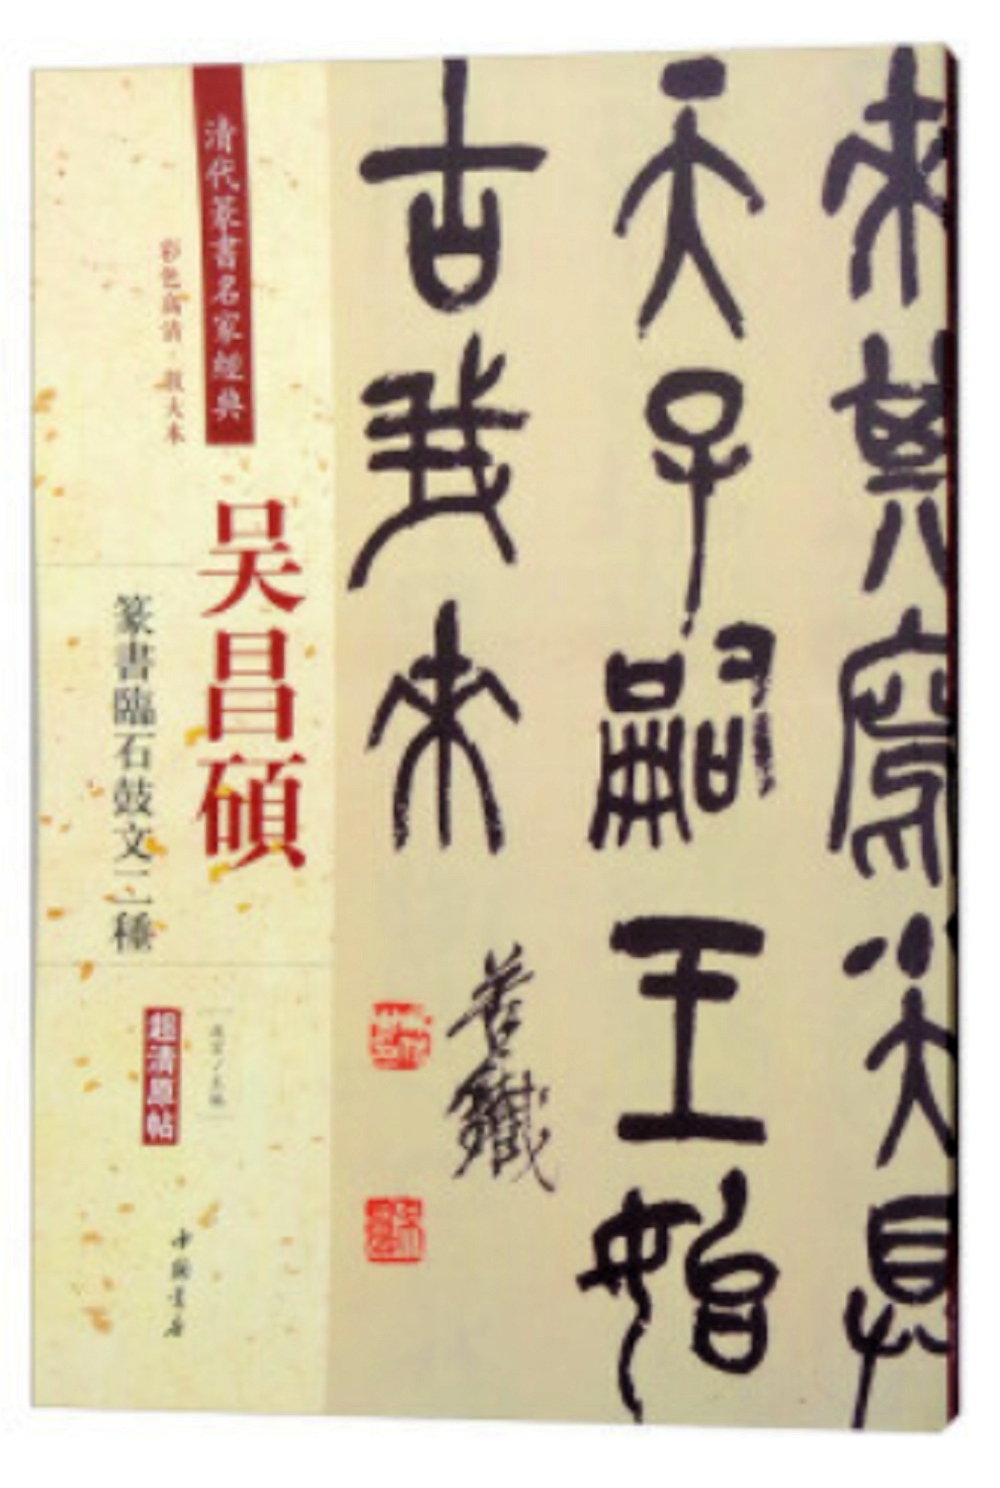 清代篆書名家經典
彩色高清·放大本
吴昌碩
篆書臨石鼓文二種
超清原帖
中國書店
來其寫夨具
天子嗣王始
古我来
苦鐵